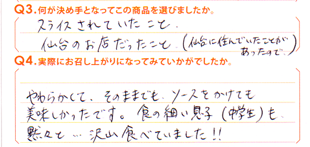 Q3.何が決め手となってこの商品を選びましたか。
スライスされていたこと
仙台のお店だったこと.(仙台に住んでいたことが
あったので.
Q4.実際にお召し上がりになってみていかがでしたか。
やわらかくて、そのままでも、ソースをかけても
美味しかったです。食の細い息子(中学生)も、
黙々と…沢山食べていました!!